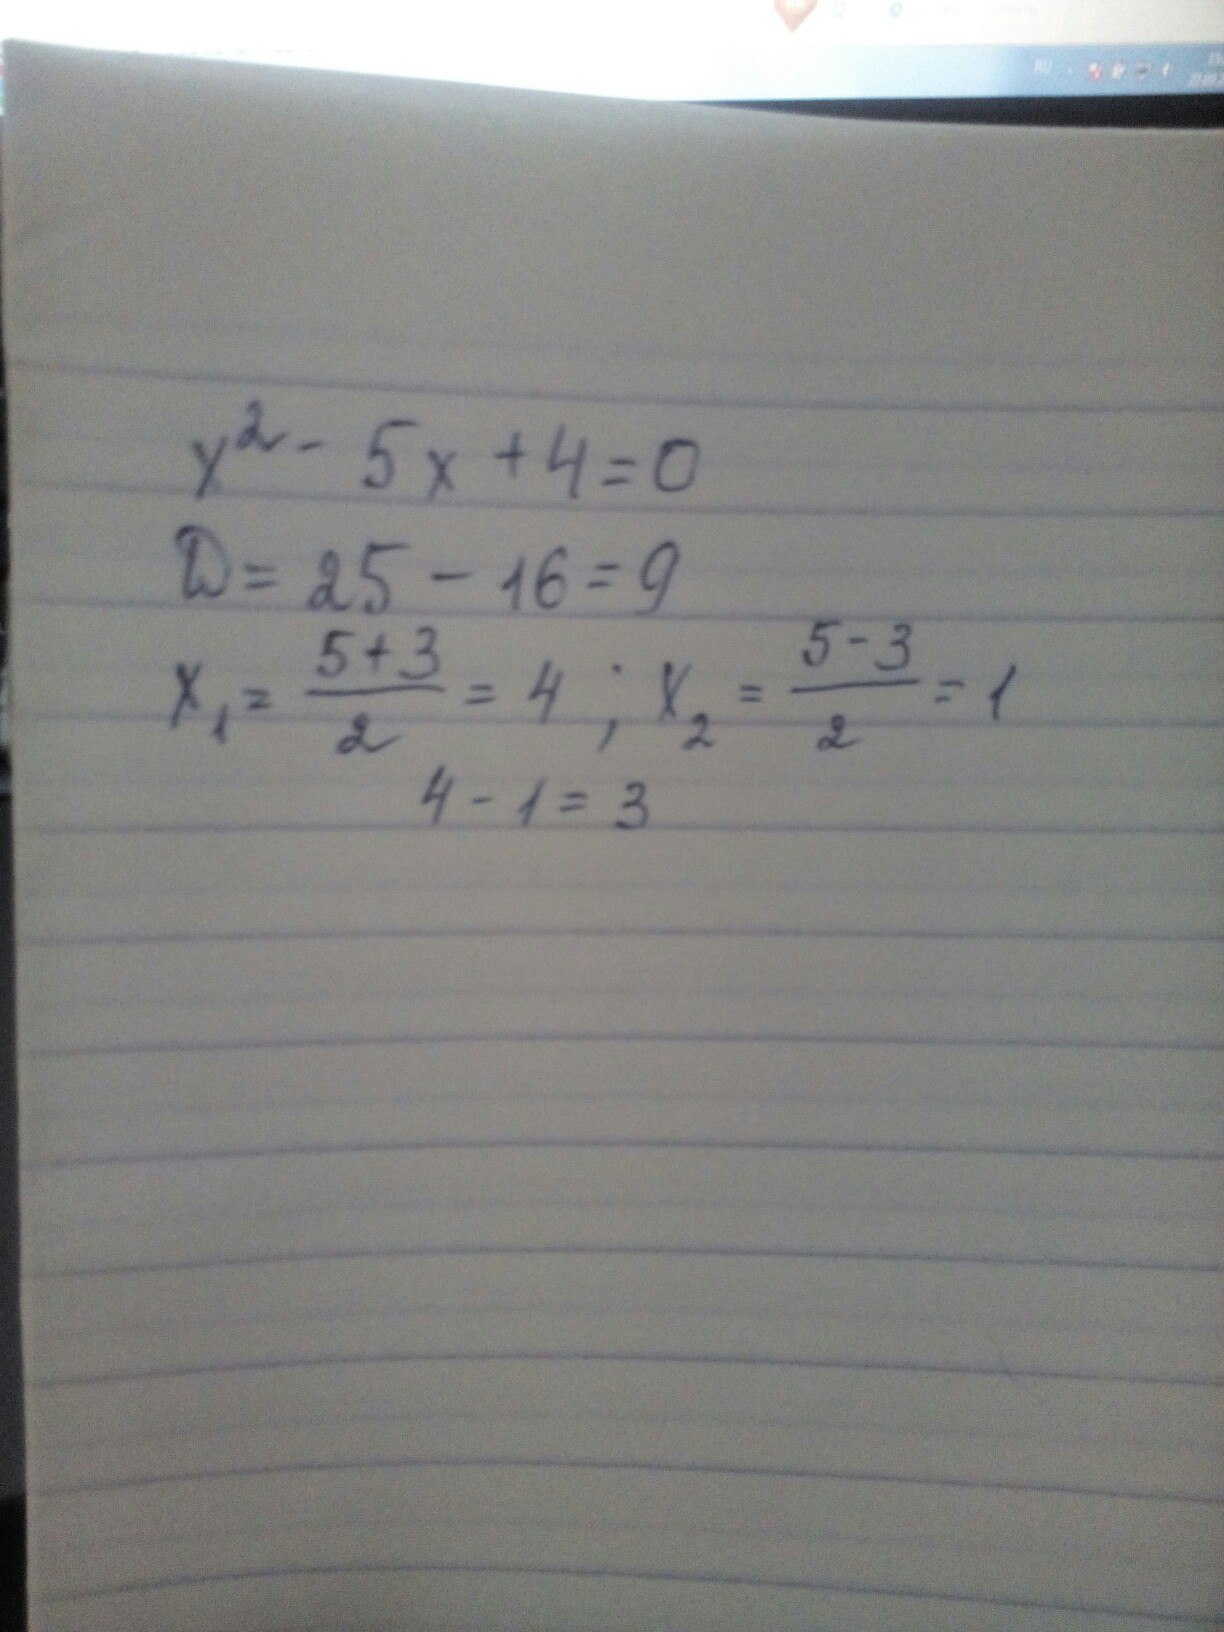 x² - 5x + 4 = 0
D = 25 - 16 = 9
x₁ = (5+3)/2 = 4 ; x₂ = (5-3)/2 = 1
4 - 1 = 3